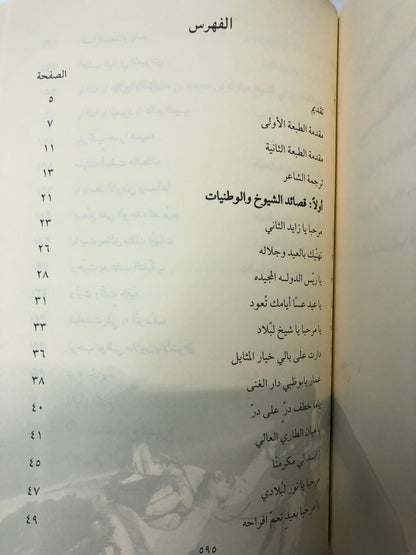 الفهرس
الصفحة
تقديم ٥
مقدمة الطبعة الأولى ٧
مقدمة الطبعة الثانية ١١
ترجمة الشاعر ١٣
أولاً: قصائد الشيوخ والوطنيات ٢١
مرحبا يا زايد الثاني ٢٣
نهنيك بالعيد وجلاله ٢٦
يا ريّس الدولـه المجيده ٢٨
يا عيد عسا أيامك تعود ٣١
يا مرحبا يا شيخ لبْلاد ٣٣
دارت على بالي خيار المثايل ٣٦
عمار يا بوظبي دار الغنى ٣٨
ياما خطف درٍ على درّ ٤٠
يا ميان الطاري العالي ٤١
زايد لي مكرمنّا ٤٥
مرحبا يا نور لبْلادي ٤٧
يا مرحبا بعيدٍ تعمّ افراحه ٤٩
٥٩٥